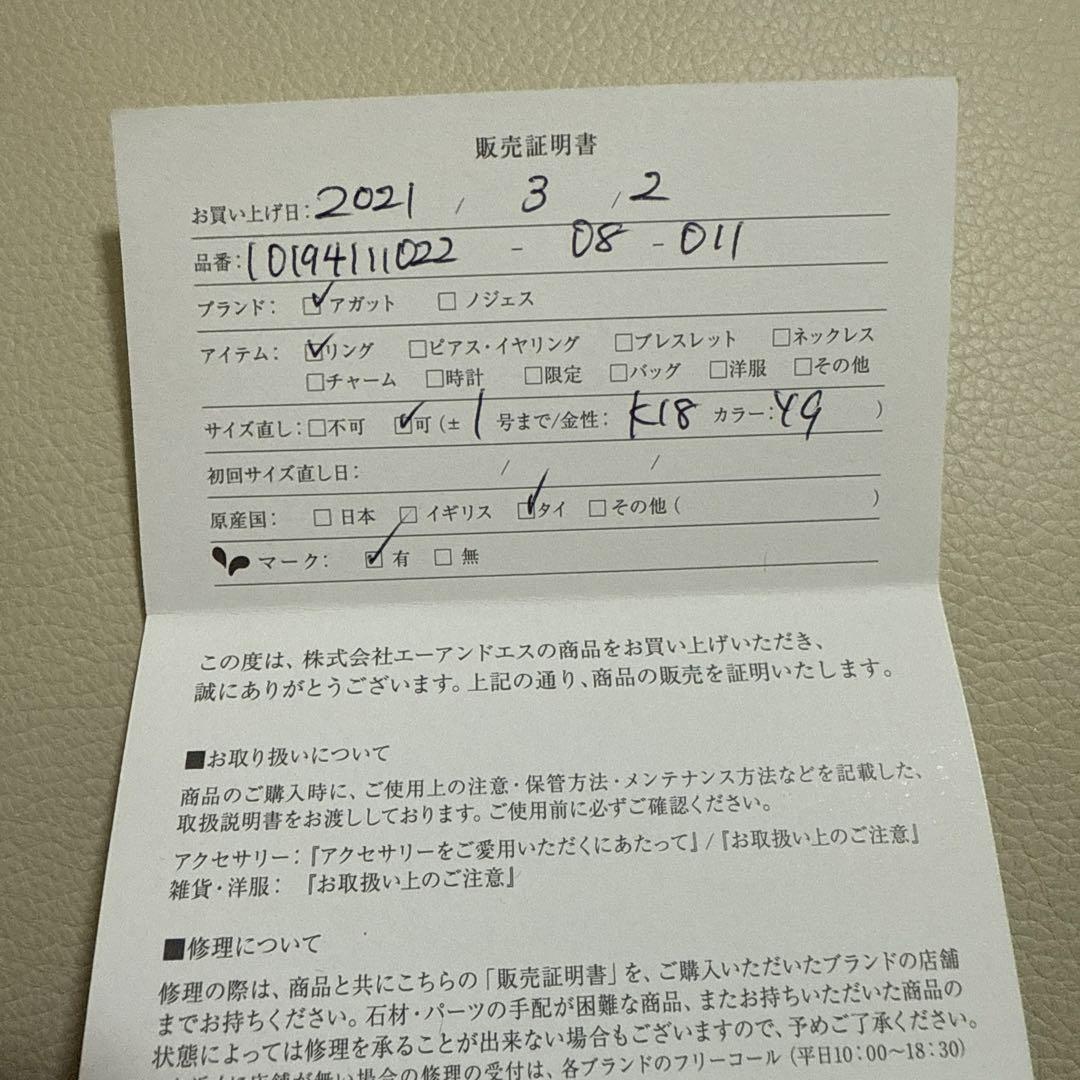 販売証明書
お買い上げ日: 2021 / 3 / 2
品番: 10194111022 - 08 - 011
ブランド: ☑アガット □ノジェス
アイテム: ☑リング □ピアス・イヤリング □ブレスレット □ネックレス
□チャーム □時計 □限定 □バッグ □洋服 □その他
サイズ直し: □不可 ☑可 (± 1 号まで/金性: K18 カラー: YG )
初回サイズ直し日: / /
原産国: □日本 □イギリス ☑タイ □その他 ( )
マーク: ☑有 □無
この度は、株式会社エーアンドエスの商品をお買い上げいただき、
誠にありがとうございます。上記の通り、商品の販売を証明いたします。
■お取り扱いについて
商品のご購入時に、ご使用上の注意・保管方法・メンテナンス方法などを記載した、
取扱説明書をお渡ししております。ご使用前に必ずご確認ください。
アクセサリー:『アクセサリーをご愛用いただくにあたって』/『お取扱い上のご注意』
雑貨・洋服: 『お取扱い上のご注意』
■修理について
修理の際は、商品と共にこちらの「販売証明書」を、ご購入いただいたブランドの店舗
までお持ちください。石材・パーツの手配が困難な商品、またお持ちいただいた商品の
状態によっては修理を承ることが出来ない場合もございますので、予めご了承ください。
に店舗が無い場合の修理の受付は、各ブランドのフリーコール (平日10:00〜18:30)